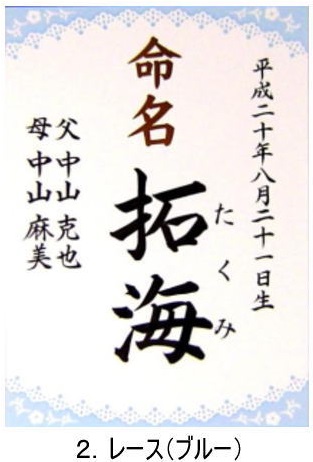 平成二十年八月二十一日生
命名
拓海
たくみ
父 中山 克也
母 中山 麻美
2. レース(ブルー)